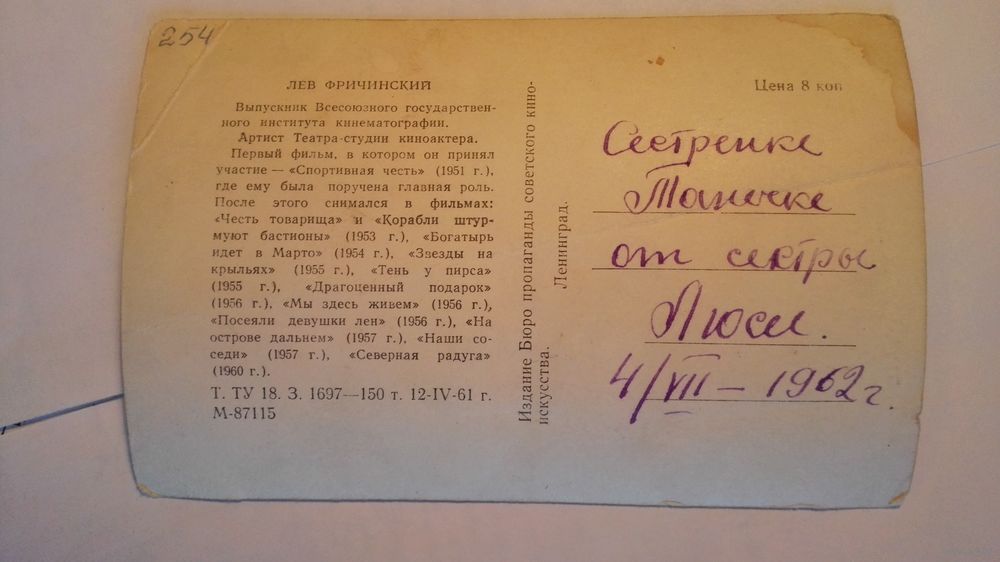 254
ЛЕВ ФРИЧИНСКИЙ
Выпускник Всесоюзного государствен-
ного института кинематографии.
Артист Театра-студии киноактера.
Первый фильм, в котором он принял
участие — «Спортивная честь» (1951 г.),
где ему была поручена главная роль.
После этого снимался в фильмах:
«Честь товарища» и «Корабли штур-
муют бастионы» (1953 г.), «Богатырь
идет в Марто» (1954 г.), «Звезды на
крыльях» (1955 г.), «Тень у пирса»
(1955 г.), «Драгоценный подарок»
(1956 г.), «Мы здесь живем» (1956 г.),
«Посеяли девушки лен» (1956 г.), «На
острове дальнем» (1957 г.), «Наши со-
седи» (1957 г.), «Северная радуга»
(1960 г.).
Т. ТУ 18. З. 1697—150 т. 12-IV-61 г.
М-87115
Издание Бюро пропаганды советского кино-
искусства.
Ленинград.
Цена 8 коп
Сестренке
Танечке
от сестры
Люси.
4/VII — 1962 г.